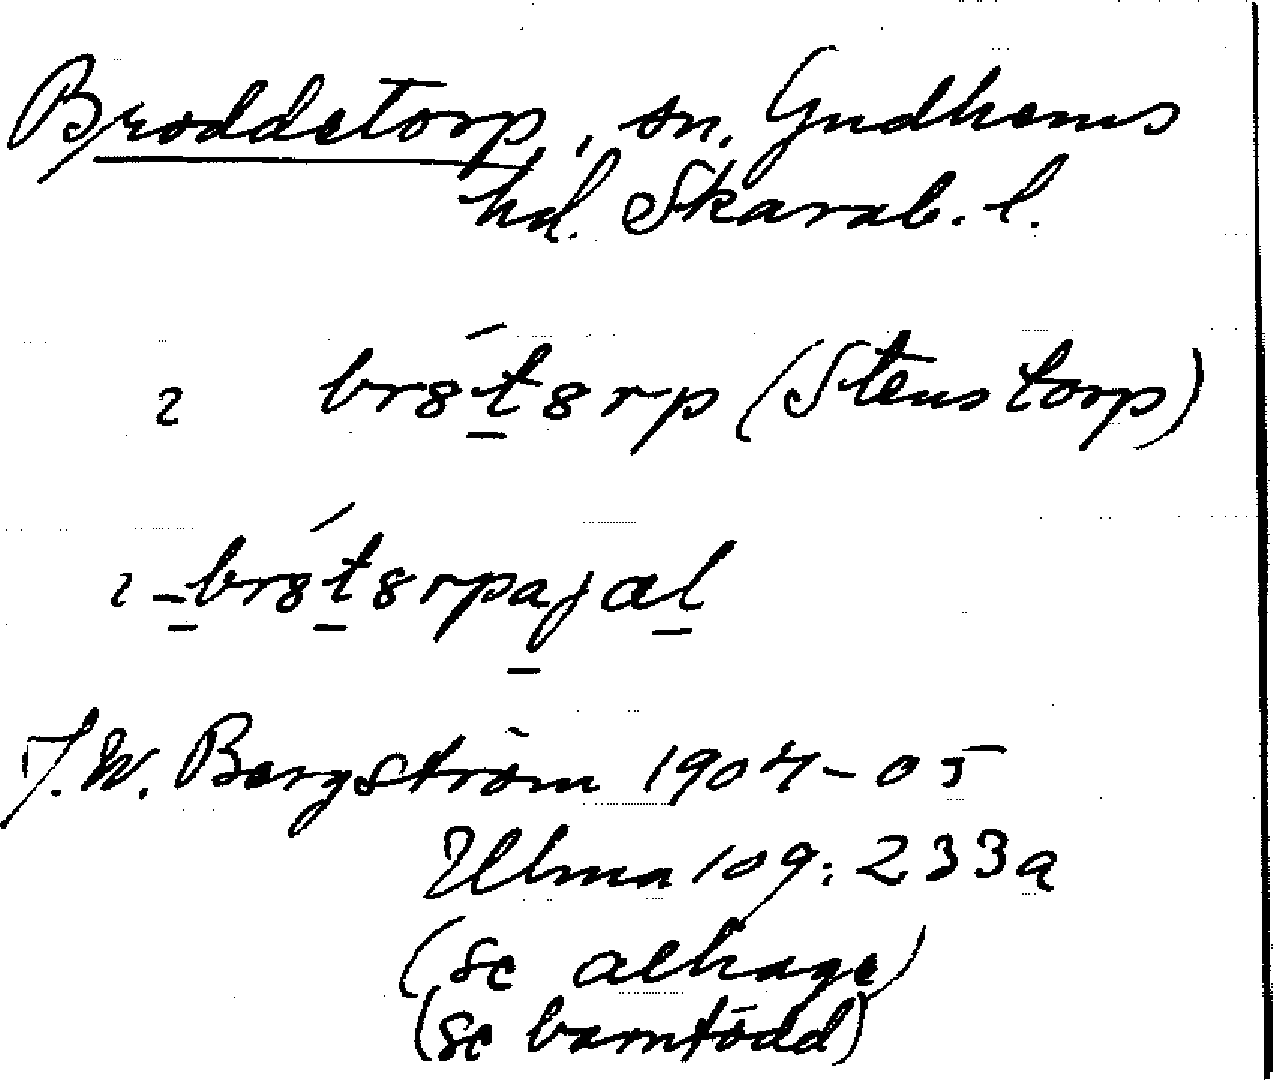 Broddetorp, sn, Gudhems
hd. Skarab. l.
2 br8t8rp (Stenstorp)
2 -br8t8rpajal
J.W. Bergström 1904-05
Ulma 109:233a
(se alhage)
(se barnfödd)